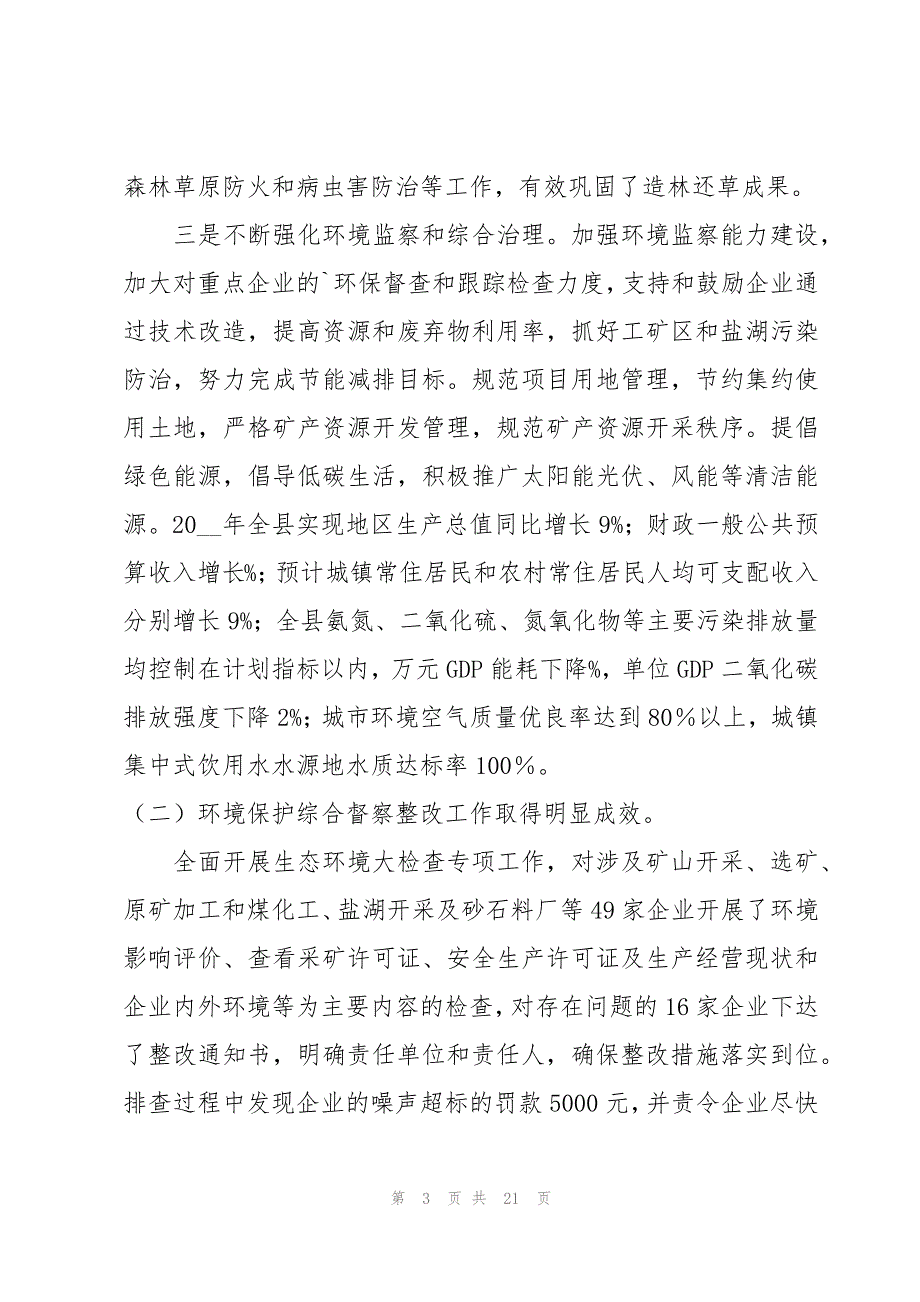 森林草原防火和病虫害防治等工作，有效巩固了造林还草成果。
三是不断强化环境监察和综合治理。加强环境监察能力建设，
加大对重点企业的`环保督查和跟踪检查力度，支持和鼓励企业通
过技术改造，提高资源和废弃物利用率，抓好工矿区和盐湖污染
防治，努力完成节能减排目标。规范项目用地管理，节约集约使
用土地，严格矿产资源开发管理，规范矿产资源开采秩序。提倡
绿色能源，倡导低碳生活，积极推广太阳能光伏、风能等清洁能
源。20__年全县实现地区生产总值同比增长 9%；财政一般公共预
算收入增长%；预计城镇常住居民和农村常住居民人均可支配收入
分别增长 9%；全县氨氮、二氧化硫、氮氧化物等主要污染排放量
均控制在计划指标以内，万元 GDP 能耗下降%，单位 GDP 二氧化碳
排放强度下降 2%；城市环境空气质量优良率达到 80％以上，城镇
集中式饮用水水源地水质达标率 100％。
（二）环境保护综合督察整改工作取得明显成效。
全面开展生态环境大检查专项工作，对涉及矿山开采、选矿、
原矿加工和煤化工、盐湖开采及砂石料厂等 49 家企业开展了环境
影响评价、查看采矿许可证、安全生产许可证及生产经营现状和
企业内外环境等为主要内容的检查，对存在问题的 16 家企业下达
了整改通知书，明确责任单位和责任人，确保整改措施落实到位。
排查过程中发现企业的噪声超标的罚款 5000 元，并责令企业尽快
第 3 页 共 21 页